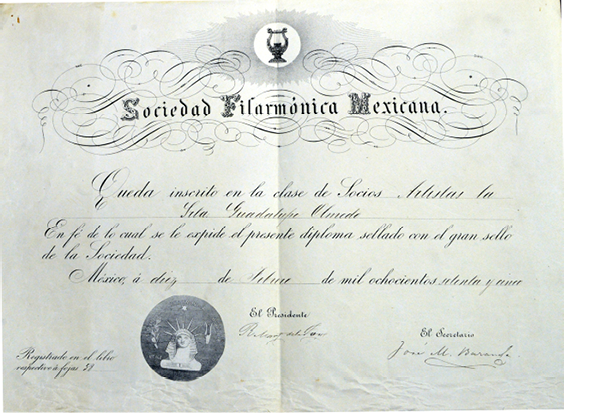 Sociedad Filarmónica Mexicana.
Queda inscrito en la clase de Socios Artistas la
Srta Guadalupe Olmedo
En fé de lo cual se le expide el presente diploma sellado con el gran sello
de la Sociedad.
México, á diez de de mil ochocientos setenta y uno
El Presidente
El Secretario
José M.
Registrado en el libro
respectivo á fojas